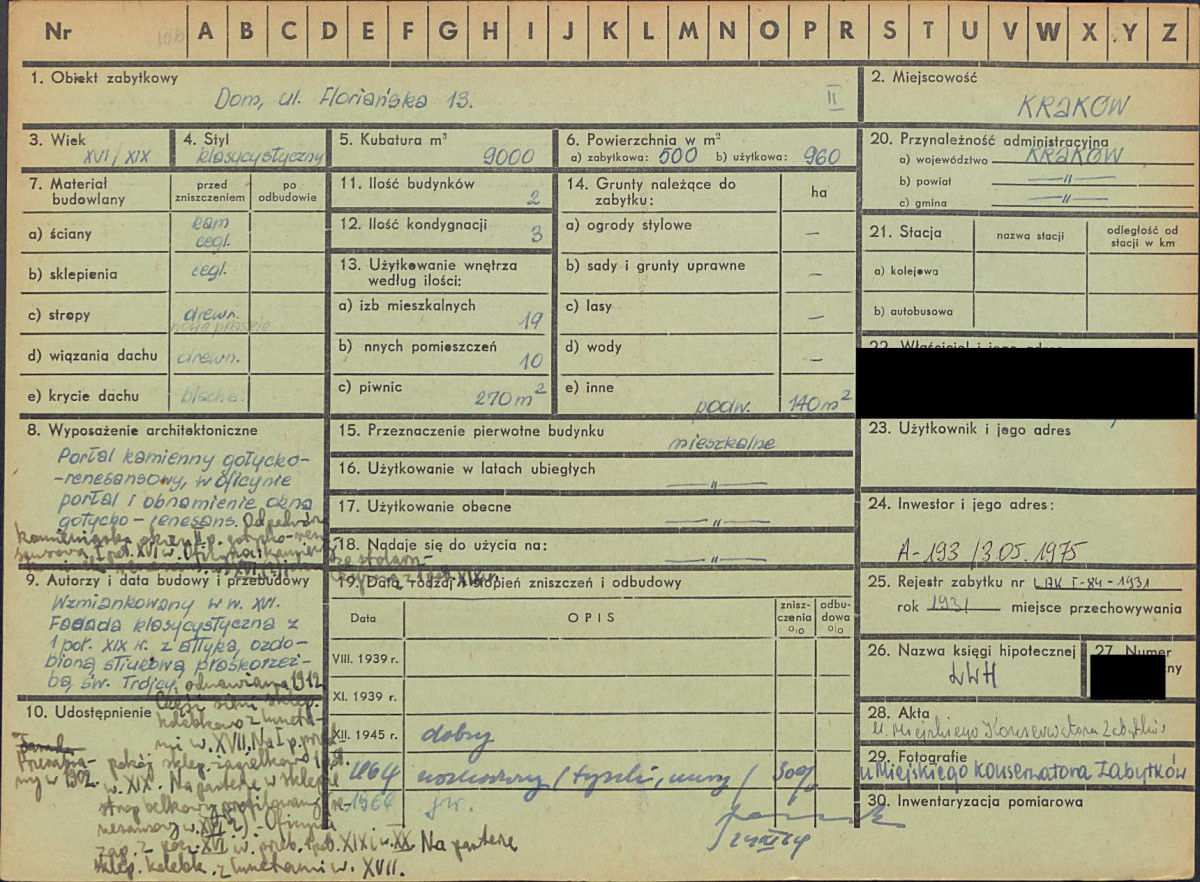 Nr
A B C D E F G H I J K L M N O P R S T U V W X Y Z
1. Obiekt zabytkowy
Dom, ul. Floriańska 13.
II
2. Miejscowość
KRAKÓW
3. Wiek
XVI/XIX
4. Styl
klasycystyczny
5. Kubatura m³
9000
6. Powierzchnia w m²
a) zabytkowa: 500 b) użytkowa: 960
20. Przynależność administracyjna
a) województwo KRAKÓW
b) powiat —"—
c) gmina —"—
7. Materiał budowlany
przed zniszczeniem
po odbudowie
a) ściany
kam
cegl.
b) sklepienia
cegl.
c) stropy
drewn.
d) wiązania dachu
drewn.
e) krycie dachu
blacha
11. Ilość budynków
2
12. Ilość kondygnacji
3
13. Użytkowanie wnętrza
według ilości:
a) izb mieszkalnych
19
b) nnych pomieszczeń
10
c) piwnic
270 m²
14. Grunty należące do
zabytku:
ha
a) ogrody stylowe
—
b) sady i grunty uprawne
—
c) lasy
—
d) wody
—
e) inne
podw. 140 m²
21. Stacja
nazwa stacji
odległość od
stacji w km
a) kolejowa
b) autobusowa
8. Wyposażenie architektoniczne
Portal kamienny gotycko-
-renesansowy, w oficynie
portal i obramienie okna
gotycko-renesans.
15. Przeznaczenie pierwotne budynku
mieszkalne
16. Użytkowanie w latach ubiegłych
—"—
17. Użytkowanie obecne
—"—
18. Nadaje się do użycia na:
—"—
23. Użytkownik i jego adres
24. Inwestor i jego adres:
A-193 / 3.05.1975
25. Rejestr zabytku nr LAK I-84-1931
rok 1931 miejsce przechowywania
26. Nazwa księgi hipotecznej
LWH
27. Numer
9. Autorzy i data budowy i przebudowy
Wzmiankowany w w. XVI.
Fasada klasycystyczna z
1 poł. XIX w. z attyką, ozdo-
bioną stiukową płaskorzeź-
bą św. Trójcy, odnawiana 1912
Część sieni sklep.
kolebkowo z luneta-
mi w. XVII. Na I p.
10. Udostępnienie
pokój sklep. żagielkowo
w. XIX. Na parterze w sklepie
strop belkowy profilowany re-
nesansowy w. XVI
XIX i w. XX. Na parterze
sklep. kolebk. z lunetami w. XVII.
w 1902.
19. Data, rodzaj i stopień zniszczeń i odbudowy
Data
OPIS
znisz-
czenia
%
odbu-
dowa
%
VIII. 1939 r.
XI. 1939 r.
XII. 1945 r.
dobry
1964
30%
1964
jw.
28. Akta
u Miejskiego Konserwatora Zabytków
29. Fotografie
u Miejskiego Konserwatora Zabytków
30. Inwentaryzacja pomiarowa